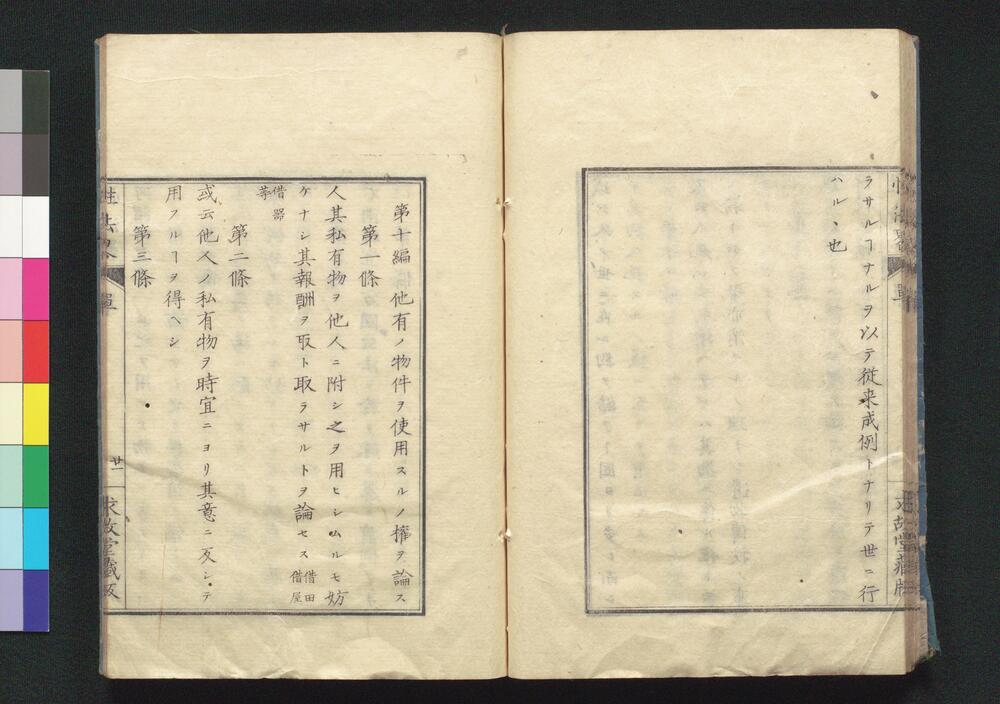 ラサルヿナルヲ以テ従来成例トナリテ世ニ行
ハルヽ也
第十編 他有ノ物件ヲ使用スルノ権ヲ論ス
第一條
人其私有物ヲ他人ニ附シ之ヲ用ヒシムルモ妨
ケナシ其報酬ヲ取ト取ラサルトヲ論セス 借田借屋
借器等
第二條
或云他人ノ私有物ヲ時宜ニヨリ其意ニ反シテ
用フルヿヲ得ヘシ
第三條
性法略 單
廿一